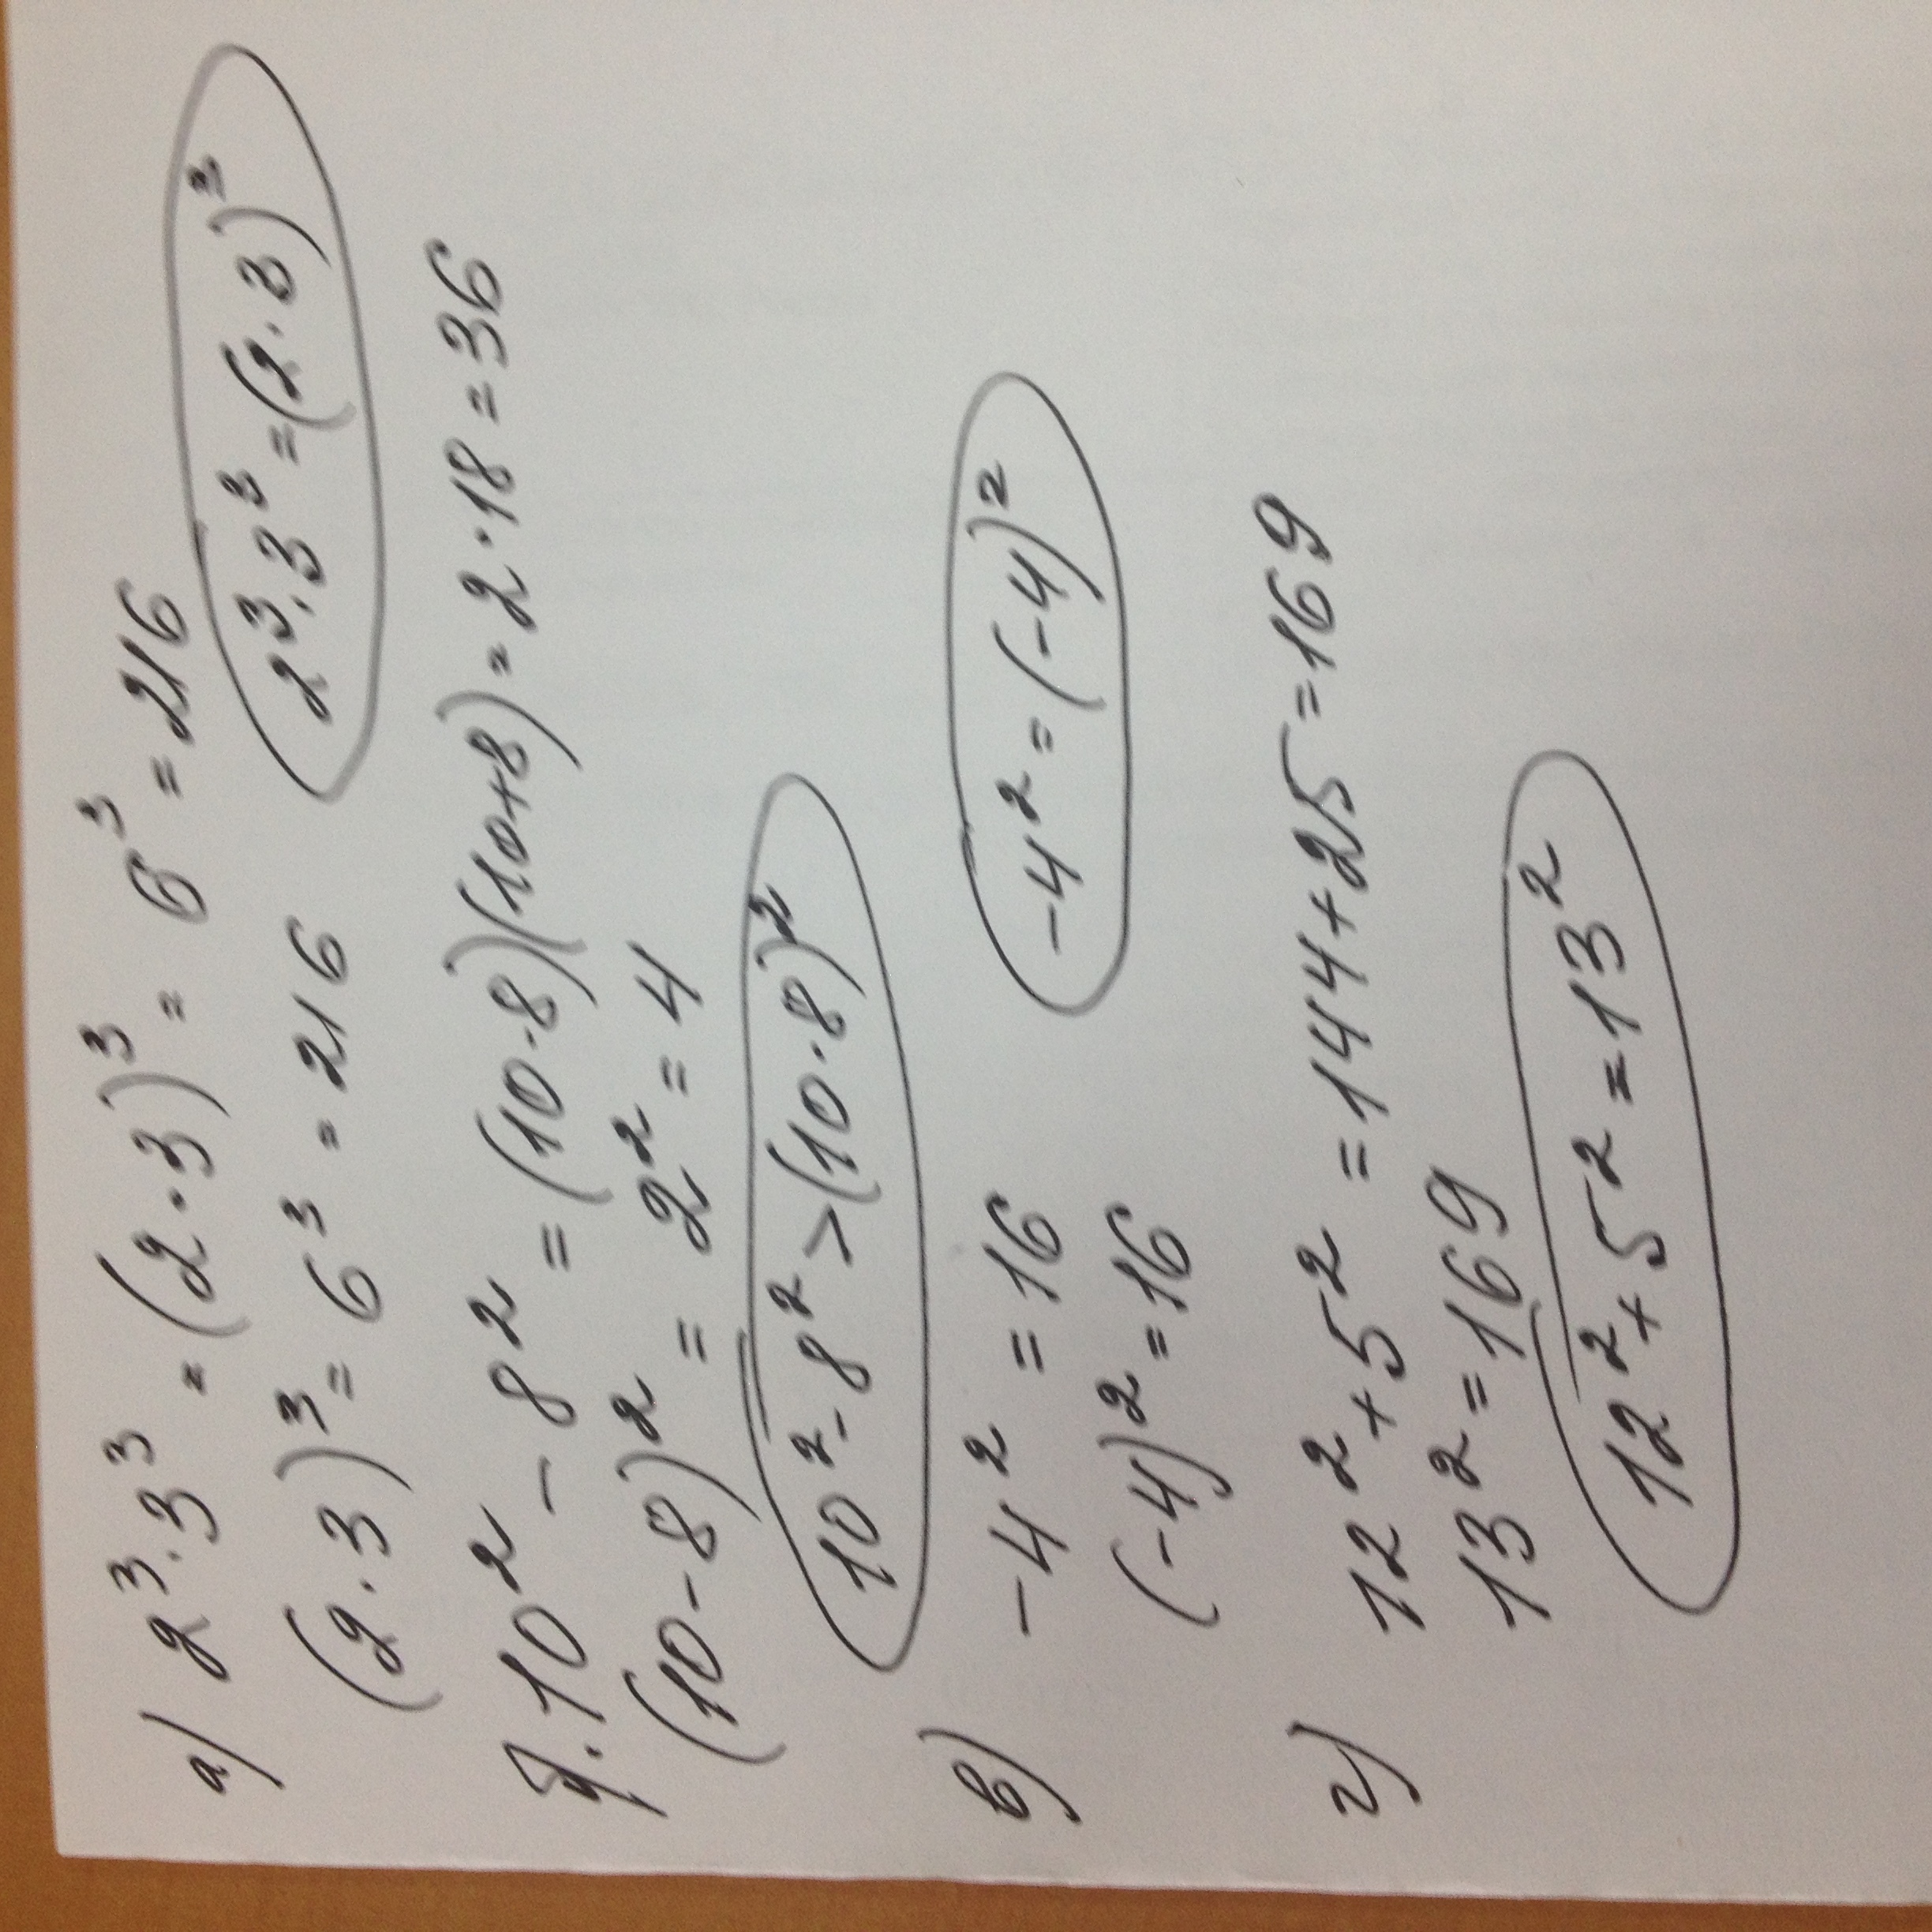 а) 2³·3³ = (2·3)³ = 6³ = 216
(2·3)³ = 6³ = 216
2³·3³ = (2·3)³
10² - 8² = (10-8)(10+8) = 2·18 = 36
(10-8)² = 2² = 4
10² - 8² > (10-8)²
в) -4² = 16
(-4)² = 16
-4² = (-4)²
г) 12² + 5² = 144 + 25 = 169
13² = 169
12² + 5² = 13²